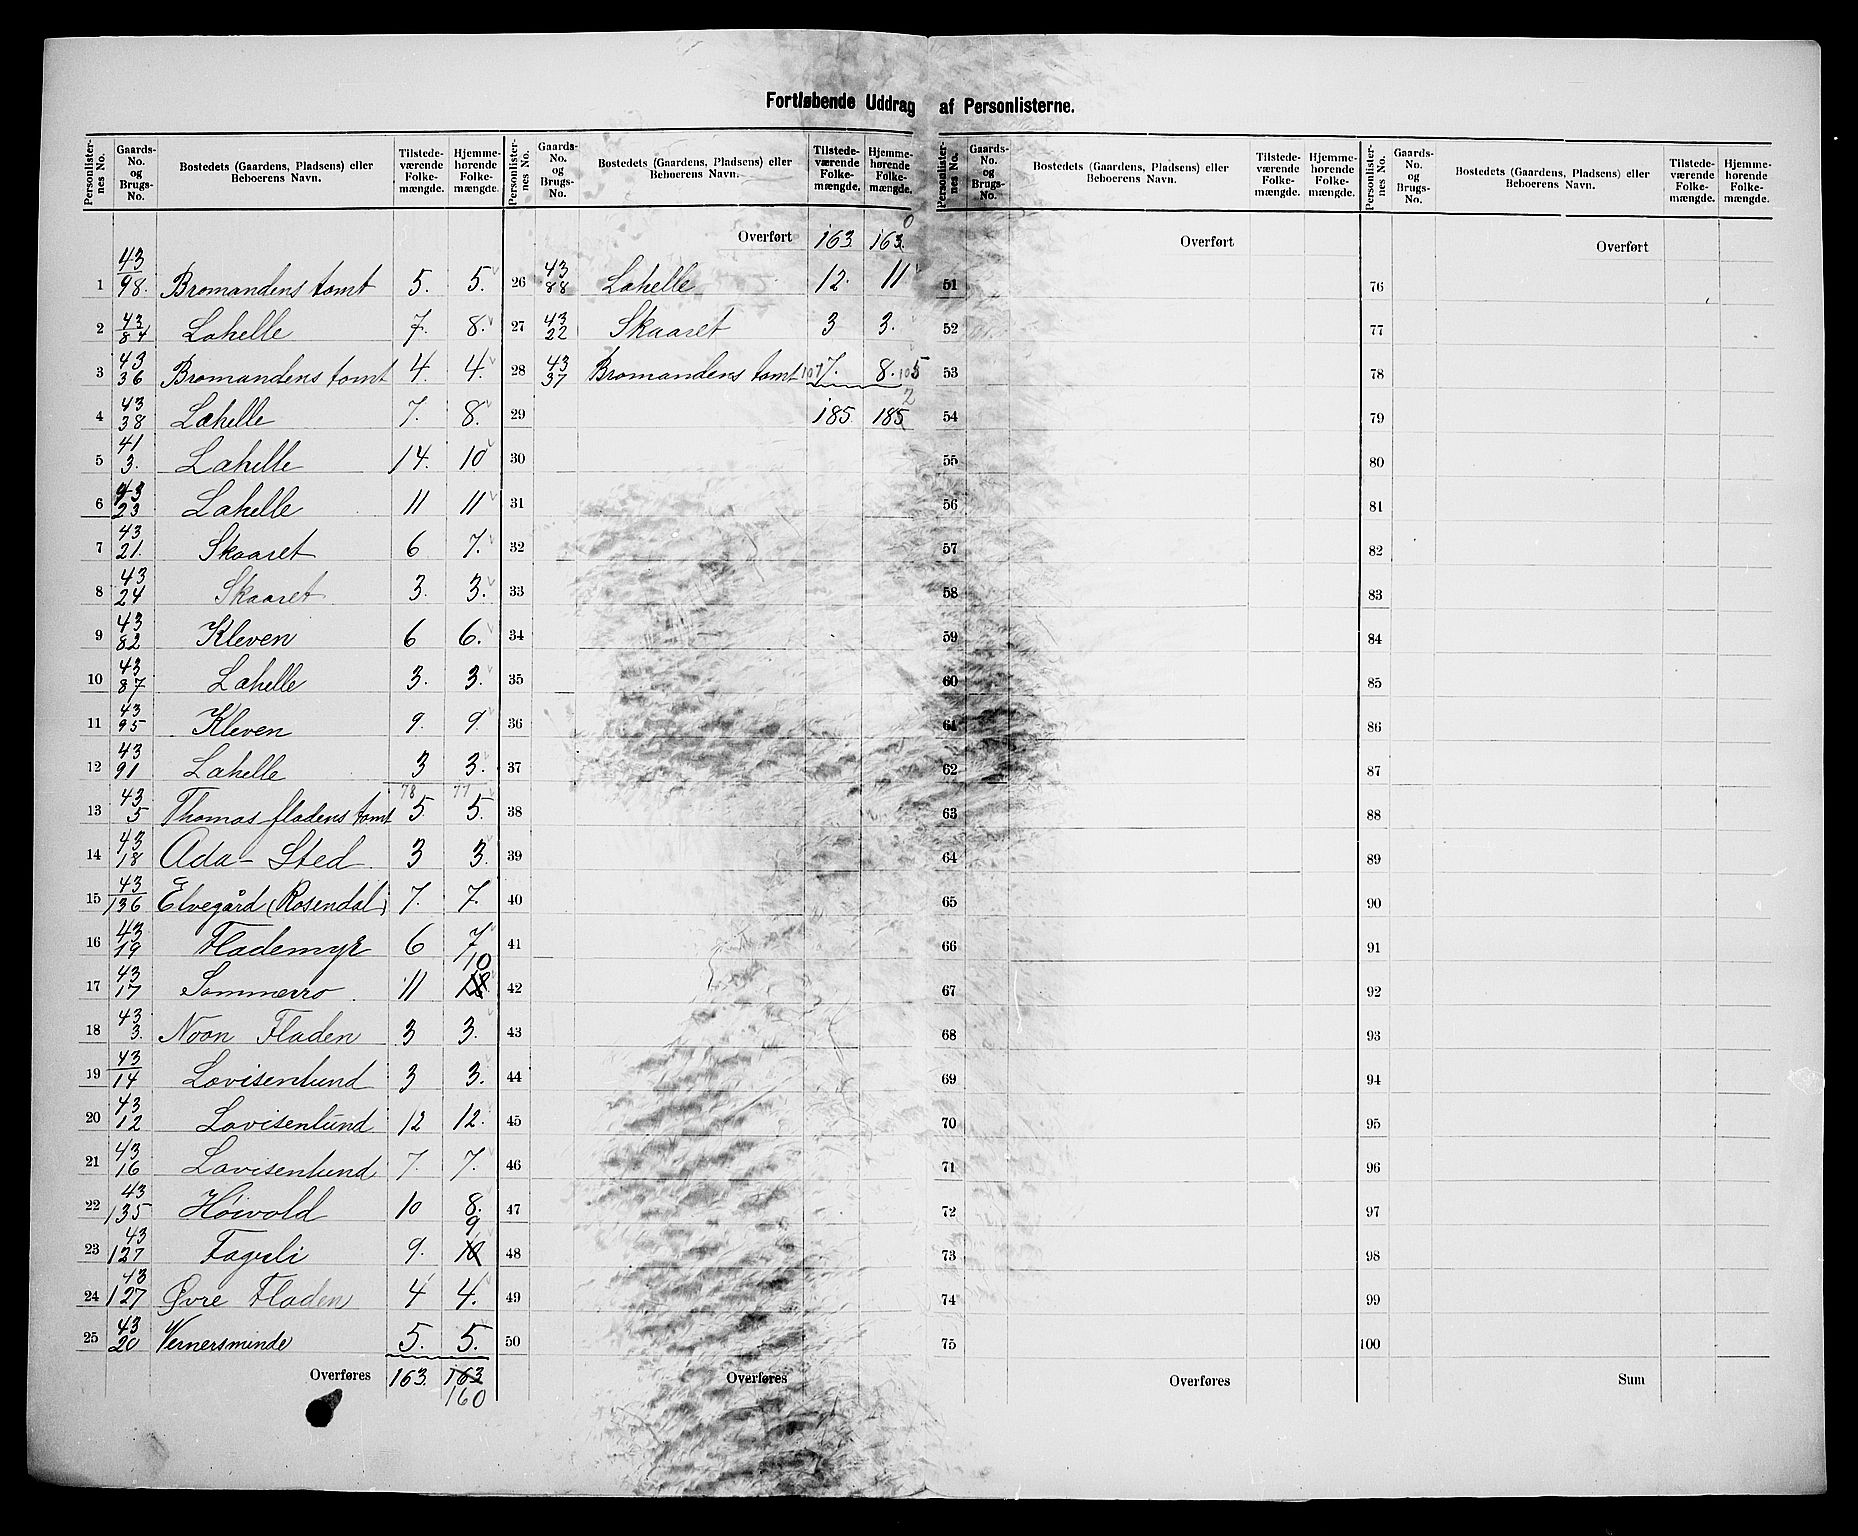 Fortløbende Uddrag af Personlisterne.
Personlister-nes No. | Gaards-No. og Brugs-No. | Bostedets (Gaardens, Pladsens) eller Beboerens Navn. | Tilstede-værende Folke-mængde. | Hjemme-hørende Folke-mængde.
1 | 43/98. | Bromandens tomt | 5. | 5.
2 | 43/84 | Lahelle | 7. | 8.
3 | 43/36 | Bromandens tomt | 4. | 4.
4 | 43/38 | Lahelle | 7. | 8.
5 | 41/3. | Lahelle | 14. | 10
6 | 43/23 | Lahelle | 11 | 11
7 | 43/21. | Skaaret | 6 | 7.
8 | 43/24 | Skaaret | 3. | 3.
9 | 43/82 | Kleven | 6 | 6.
10 | 43/87 | Lahelle | 3. | 3.
11 | 43/95 | Kleven | 9. | 9.
12 | 43/91 | Lahelle | 3 | 3.
78 | 77
13 | 43/5 | Thomas fladens tomt | 5. | 5.
14 | 43/18 | Ada-Sted | 3 | 3.
15 | 43/136 | Elvegård (Rosendal) | 7. | 7.
16 | 43/19 | Flademyr | 6 | 7
17 | 43/17 | Sommerro | 11 | 10
18 | 43/3. | Noan Fladen | 3 | 3.
19 | 43/14 | Lovisenlund | 3 | 3.
20 | 43/12 | Lovisenlund | 12 | 12.
21 | 43/16 | Lovisenlund | 7. | 7.
22 | 43/135 | Høivold | 10 | 8.
23 | 43/127 | Fagerli | 9. | 10 9
24 | 43/127 | Øvre Fladen | 4 | 4.
25 | 43/20 | Vernersminde | 5. | 5.
Overføres | 163. | 163 160
Personlister-nes No. | Gaards-No. og Brugs-No. | Bostedets (Gaardens, Pladsens) eller Beboerens Navn. | Tilstede-værende Folke-mængde. | Hjemme-hørende Folke-mængde.
Overført | 163. | 163. 0
26 | 43/88 | Lahelle | 12. | 11
27 | 43/22 | Skaaret | 3 | 3.
28 | 43/37 | Bromandens tomt | 107 7. | 8. 105
29 | 185 | 185 2
30
31
32
33
34
35
36
37
38
39
40
41
42
43
44
45
46
47
48
49
50
Overføres
Personlister-nes No. | Gaards-No. og Brugs-No. | Bostedets (Gaardens, Pladsens) eller Beboerens Navn. | Tilstede-værende Folke-mængde. | Hjemme-hørende Folke-mængde.
Overført
51
52
53
54
55
56
57
58
59
60
61
62
63
64
65
66
67
68
69
70
71
72
73
74
75
Overføres
Personlister-nes No. | Gaards-No. og Brugs-No. | Bostedets (Gaardens, Pladsens) eller Beboerens Navn. | Tilstede-værende Folke-mængde. | Hjemme-hørende Folke-mængde.
Overført
76
77
78
79
80
81
82
83
84
85
86
87
88
89
90
91
92
93
94
95
96
97
98
99
100
Sum